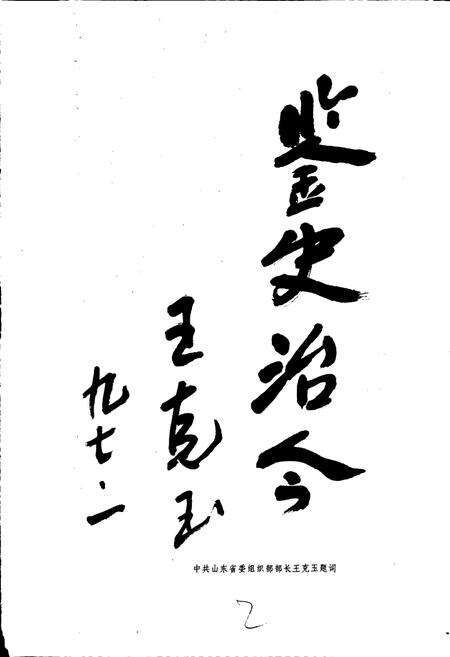 鉴史治今
王克玉
九七·二
中共山东省委组织部部长王克玉题词
2